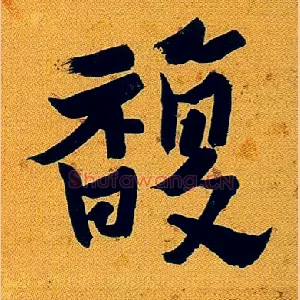 馥
Shufawang.CN